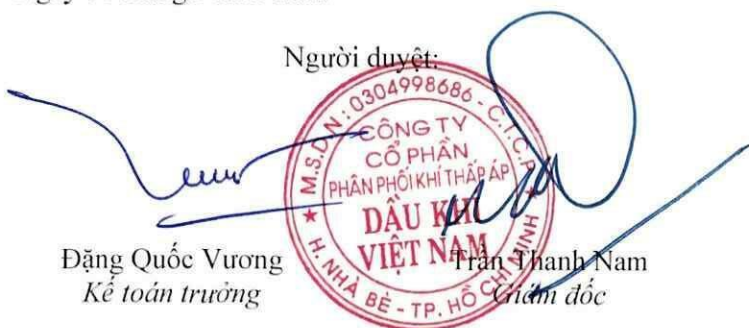 Người duyệt:
M.S.D.N: 0304998686 - C.T.C.P
CÔNG TY
CỔ PHẦN
PHÂN PHỐI KHÍ THẤP ÁP
DẦU KHÍ
VIỆT NAM
H. NHÀ BÈ - TP. HỒ CHÍ MINH
Đặng Quốc Vương
Trần Thanh Nam
Kế toán trưởng
Giám đốc